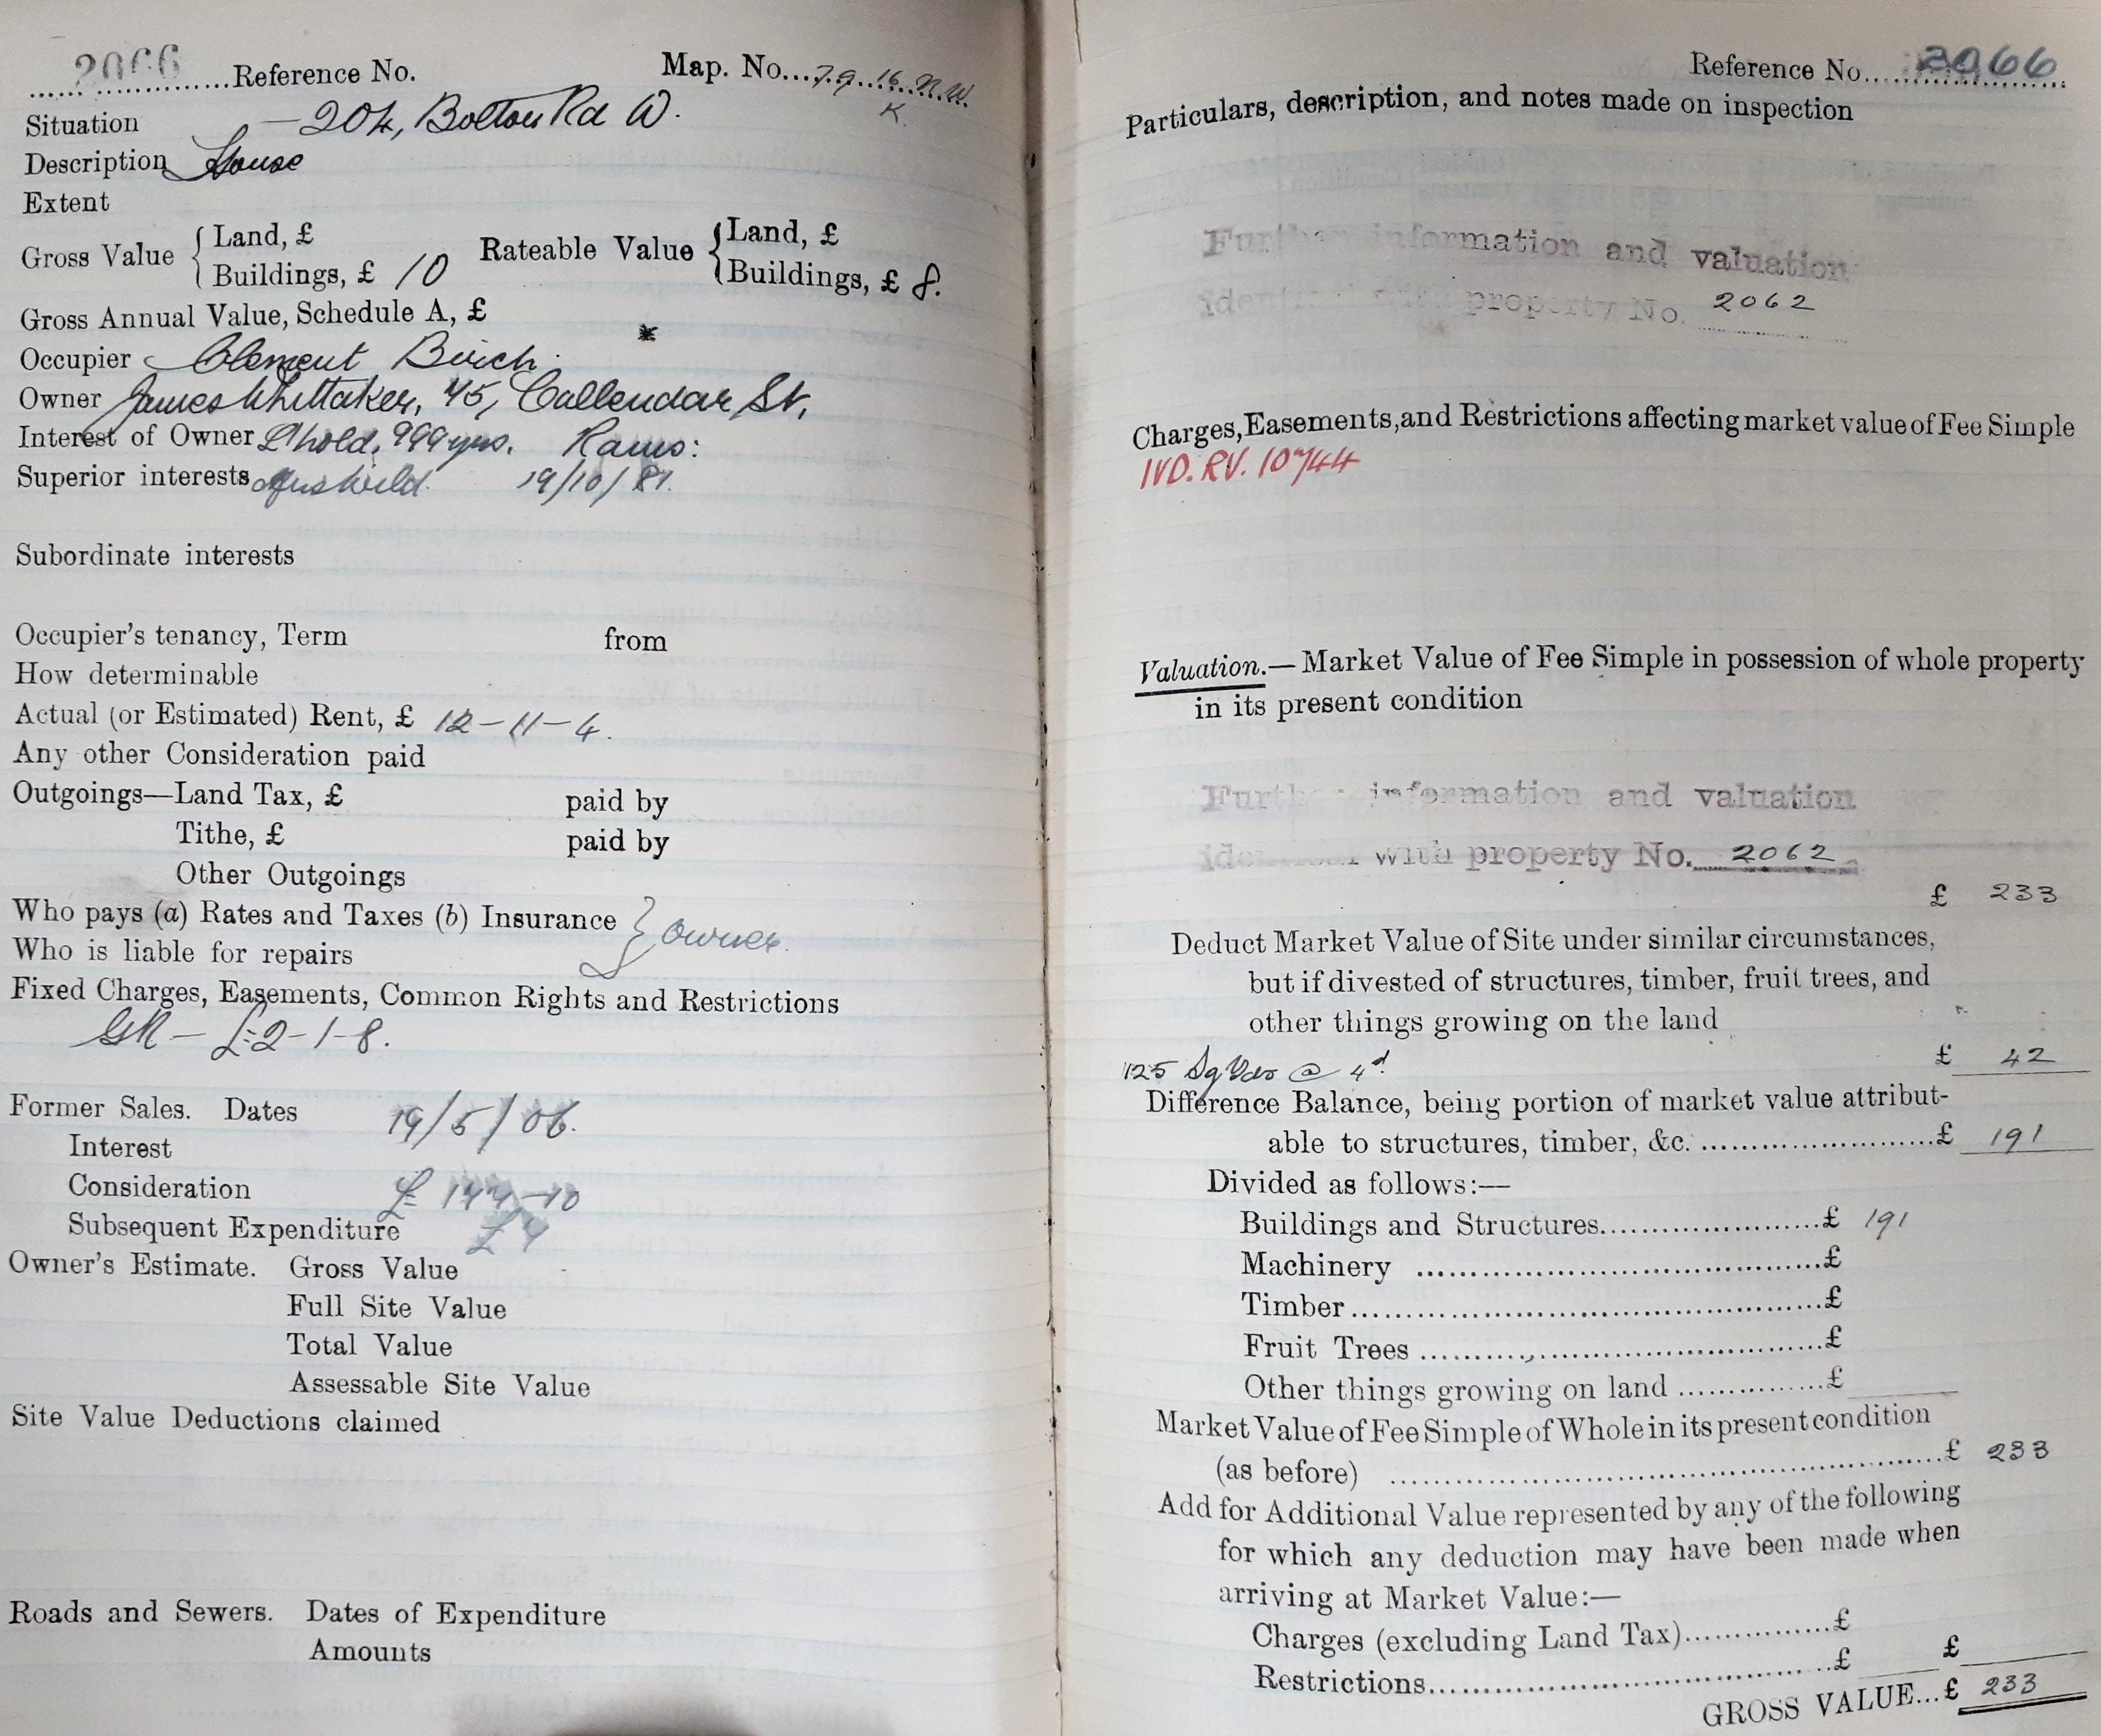 2066 Reference No. Map. No. 79.16 N.W.
K.
Situation – 204, Bolton Rd W.
Description House
Extent
Gross Value { Land, £ Rateable Value { Land, £
Buildings, £ 10 Buildings, £ 8.
Gross Annual Value, Schedule A, £
Occupier Clement Birch
Owner James Whittaker, 45, Callendar St,
Interest of Owner L'hold, 999 yrs. Rams:
Superior interests 19/10/81.
Subordinate interests
Occupier's tenancy, Term from
How determinable
Actual (or Estimated) Rent, £ 12–11–4.
Any other Consideration paid
Outgoings—Land Tax, £ paid by
Tithe, £ paid by
Other Outgoings
Who pays (a) Rates and Taxes (b) Insurance } Owner.
Who is liable for repairs
Fixed Charges, Easements, Common Rights and Restrictions
GR – £2–1–8.
Former Sales. Dates 19/5/06.
Interest
Consideration £ –10
Subsequent Expenditure
Owner's Estimate. Gross Value
Full Site Value
Total Value
Assessable Site Value
Site Value Deductions claimed
Roads and Sewers. Dates of Expenditure
Amounts
Reference No. 2066
Particulars, description, and notes made on inspection
Further information and valuation
identical with property No. 2062
Charges, Easements, and Restrictions affecting market value of Fee Simple
IVD. RV. 10
Valuation.—Market Value of Fee Simple in possession of whole property
in its present condition
Further information and valuation
identical with property No. 2062
£ 233
Deduct Market Value of Site under similar circumstances,
but if divested of structures, timber, fruit trees, and
other things growing on the land
125 Sq Yds @ 4d £ 42
Difference Balance, being portion of market value attribut-
able to structures, timber, &c. £ 191
Divided as follows:—
Buildings and Structures £ 191
Machinery £
Timber £
Fruit Trees £
Other things growing on land £
Market Value of Fee Simple of Whole in its present condition
(as before) £ 233
Add for Additional Value represented by any of the following
for which any deduction may have been made when
arriving at Market Value:—
Charges (excluding Land Tax) £
Restrictions £ £
GROSS VALUE...£ 233